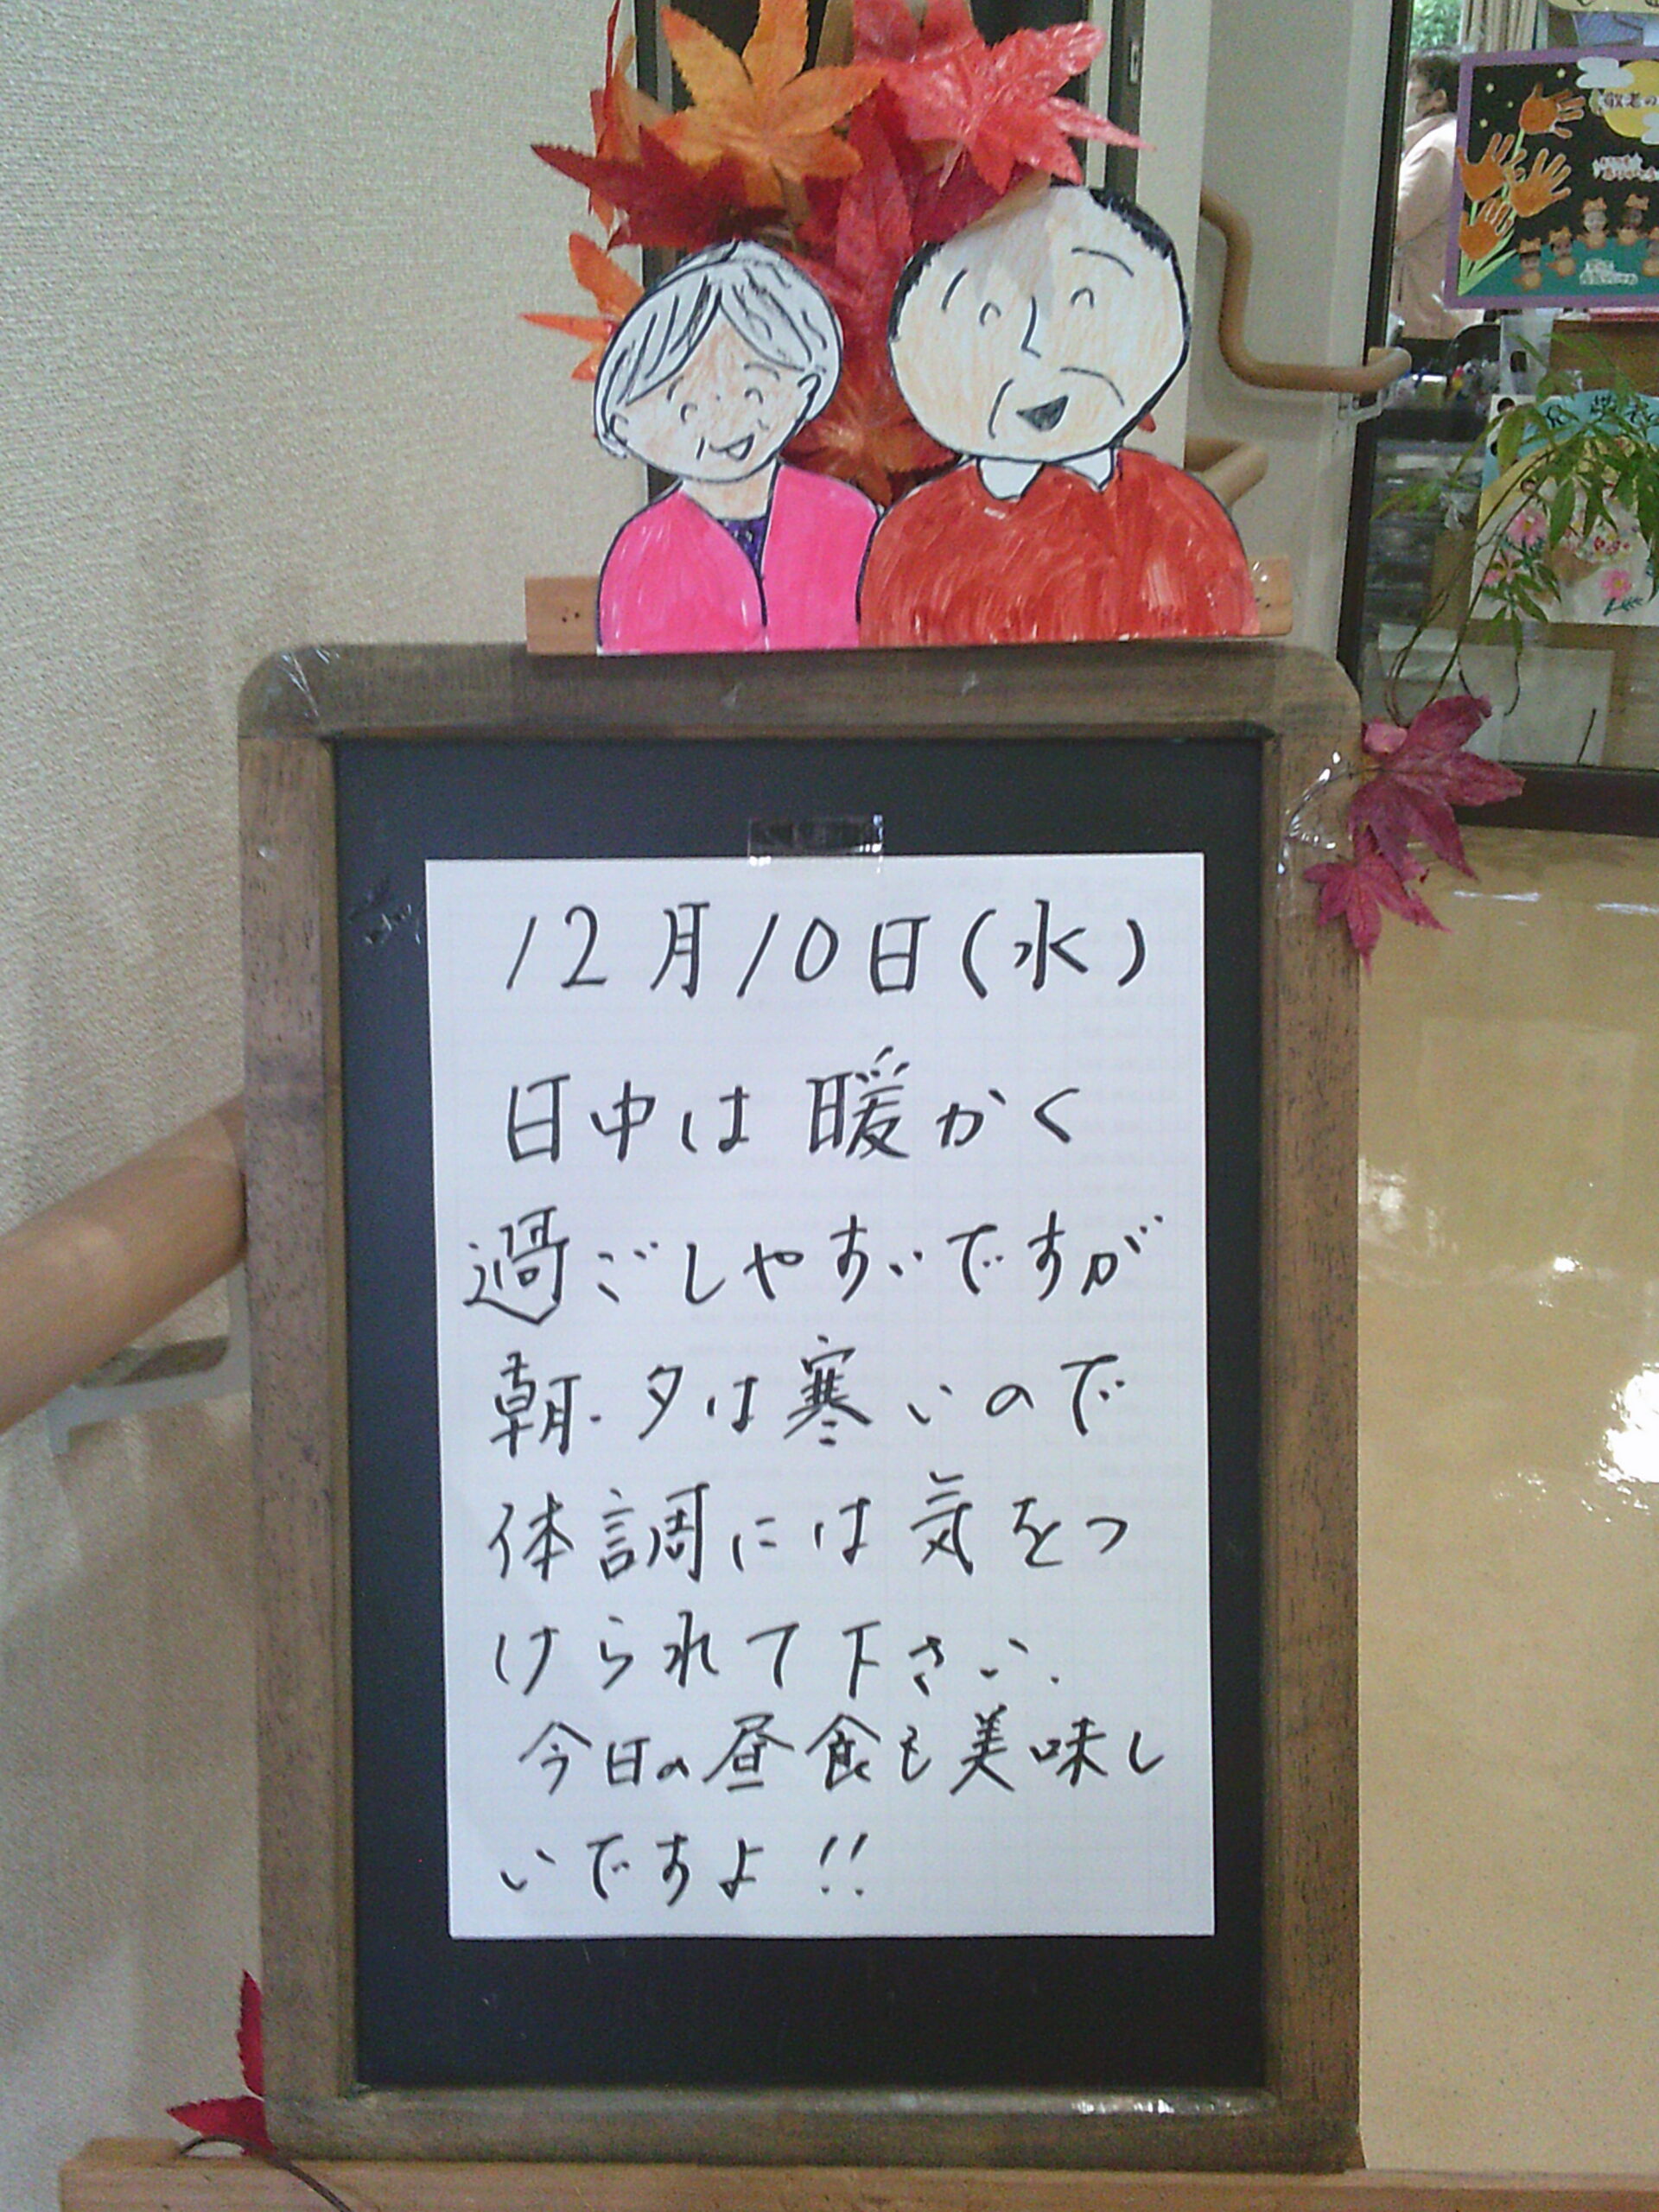 敬老の
12月10日(水)
日中は暖かく
過ごしやすいですが
朝・夕は寒いので
体調には気をつ
けられて下さい.
今日の昼食も美味し
いですよ!!